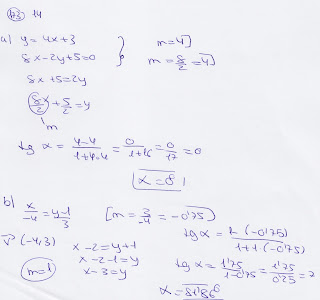 93 14
a) y = 4x+3
8x-2y+5=0
m=4
m = 8/2 = 4
8x+5=2y
8x/2 + 5/2 = y
m
tg α = 4-4/1+4·4 = 0/1+16 = 0/17 = 0
α = 0
b) x/-4 = y-1/3
[m = 3/-4 = -0'75)
v (-4,3)
x-2=y+1
x-2-1=y
x-3=y
m=1
tg α = 1-(-0'75)/1+1·(-0'75)
tg α = 1'75/1-0'75 = 1'75/0'25 = 7
α = 81'86º